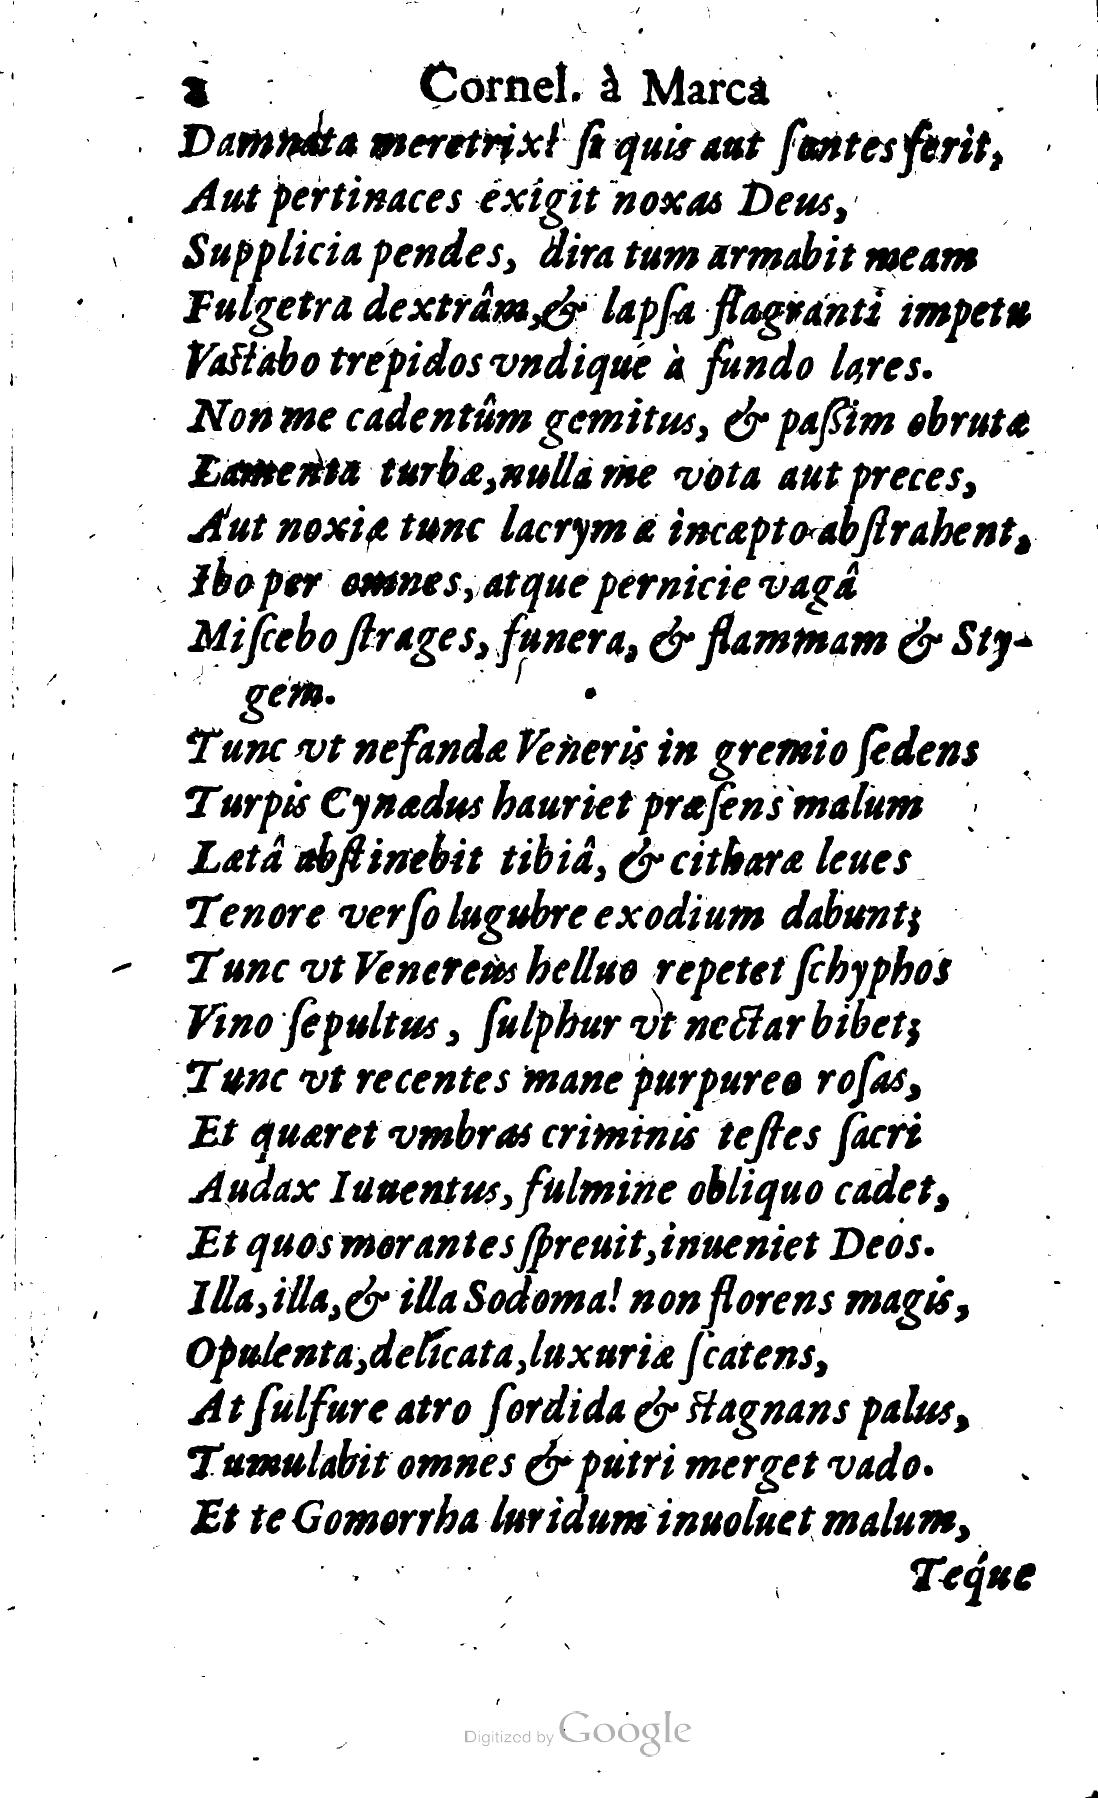 2 Cornel. à Marca
Damnata meretrix! ſi quis aut ſontes ferit,
Aut pertinaces exigit noxas Deus,
Supplicia pendes, dira tum armabit meam
Fulgetra dextrâm, & lapſa flagranti impetu
Vaſtabo trepidos vndique à fundo lares.
Non me cadentûm gemitus, & paſſim obrutæ
Lamenta turbæ, nulla me vota aut preces,
Aut noxiæ tunc lacrymæ incæpto abſtrahent,
Ibo per omnes, atque pernicie vagâ
Miſcebo ſtrages, funera, & flammam & Sty-
gem.
Tunc vt nefandæ Veneris in gremio ſedens
Turpis Cynædus hauriet præſens malum
Lætâ abſtinebit tibiâ, & citharæ leues
Tenore verſo lugubre exodium dabunt;
Tunc vt Venereus helluo repetet ſchyphos
Vino ſepultus, ſulphur vt nectar bibet;
Tunc vt recentes mane purpureo roſas,
Et quæret vmbras criminis teſtes ſacri
Audax Iuuentus, fulmine obliquo cadet,
Et quos morantes ſpreuit, inueniet Deos.
Illa, illa, & illa Sodoma! non florens magis,
Opulenta, delicata, luxuriæ ſcatens,
At ſulfure atro ſordida & ſtagnans palus,
Tumulabit omnes & putri merget vado.
Et te Gomorrha luridum inuoluet malum,
Teque
Digitized by Google